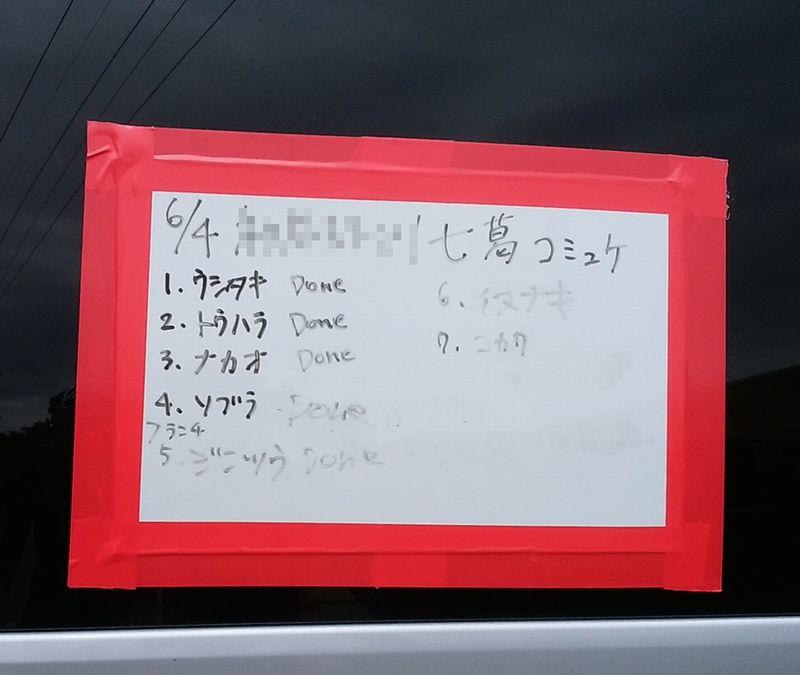 6/4 七葛コミュケ
1. ウシタキ Done
2. トウハラ Done
3. ナカオ Done
4. ソブラ Done
プラニ4
5. ジンツウ Done
6. イヌナキ
7. ニカワ